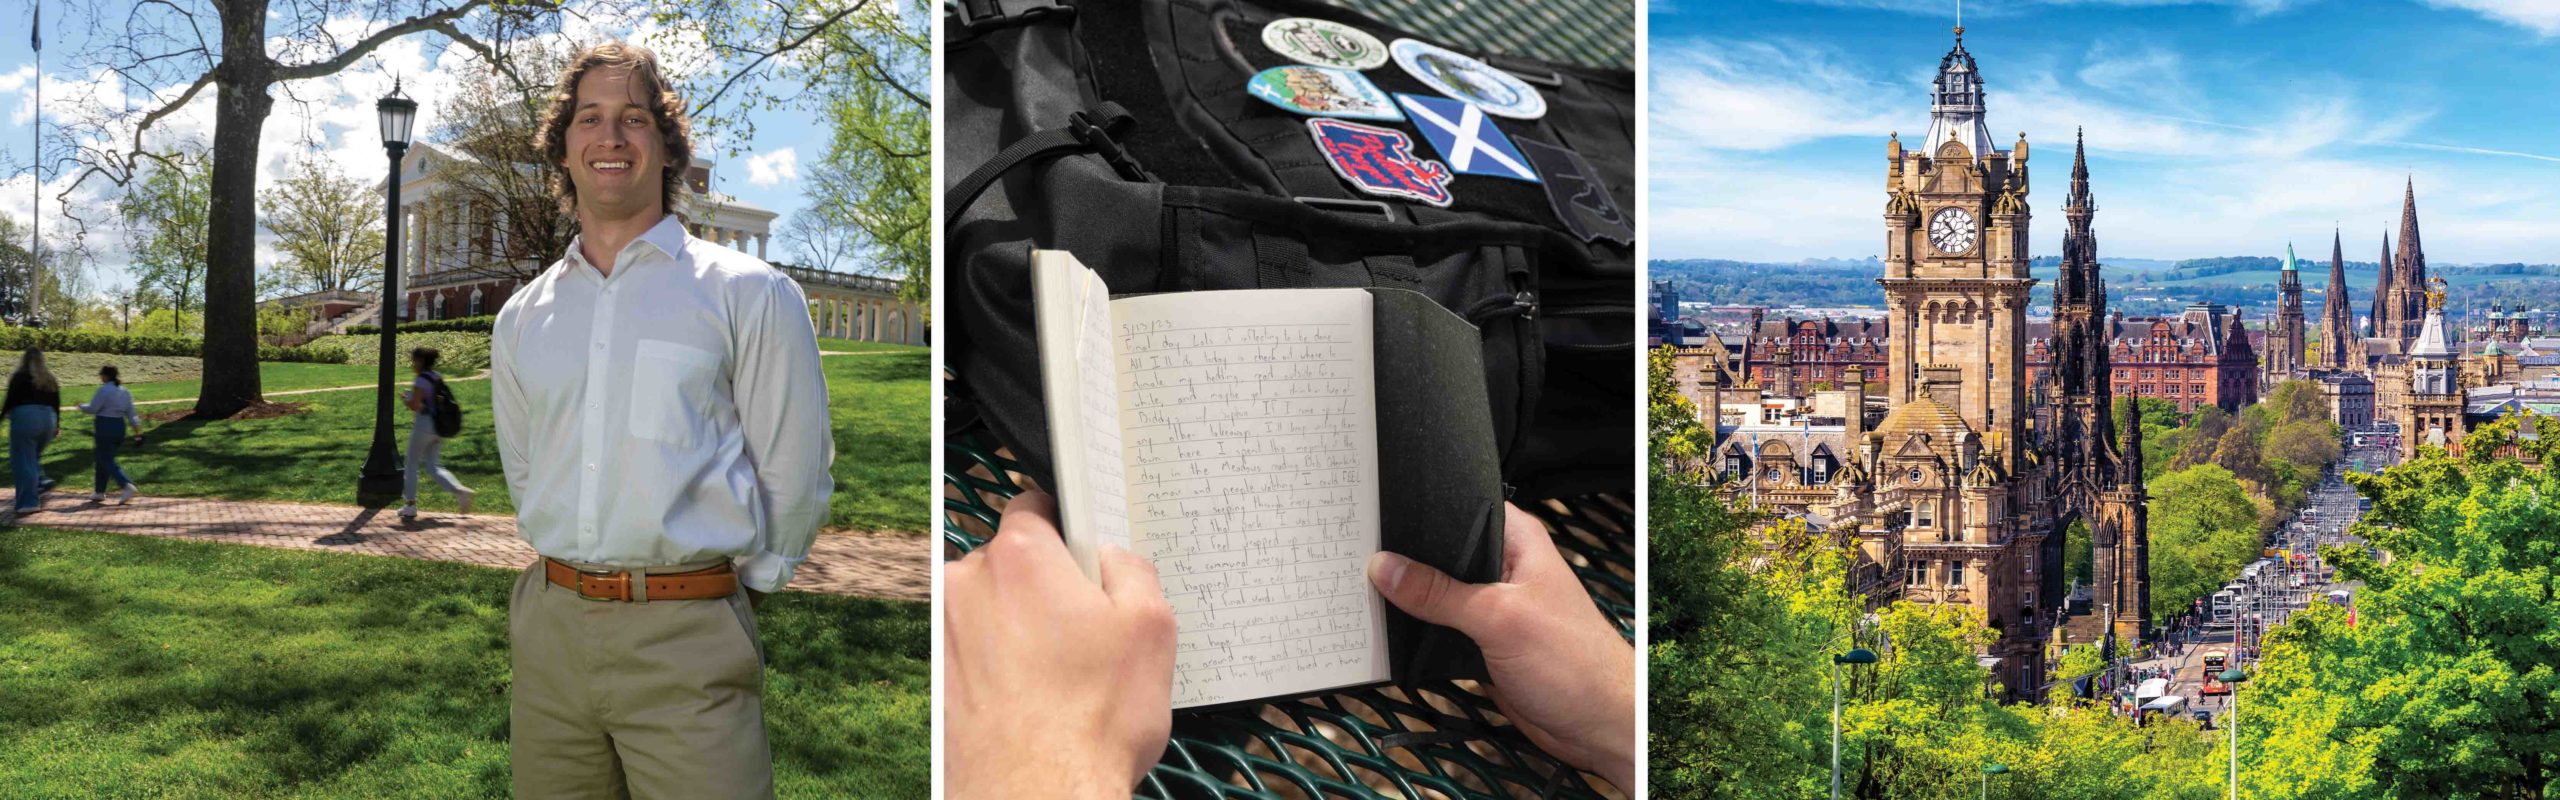 5/13/23
Final day. Lots of reflecting to be done
All I'll do today is check out where to
my bedding, read outside for a
while, and maybe get a drink or two at
Biddy's w/ If I come up w/
any other takeaways I'll keep writing them
down here. I spent the majority of the
day in the Meadows reading Bob
memoir and people watching I could FEEL
the love seeping through every nook and
cranny of that park. I was by myself
and yet feel wrapped up in the fabric
of the communal energy I think it was
happiest I've ever been in my entire
My final words to Edinburgh
into my own as a human being
hope for my future and those
around me and feel an emotional
high and true happiness based in human
connection.